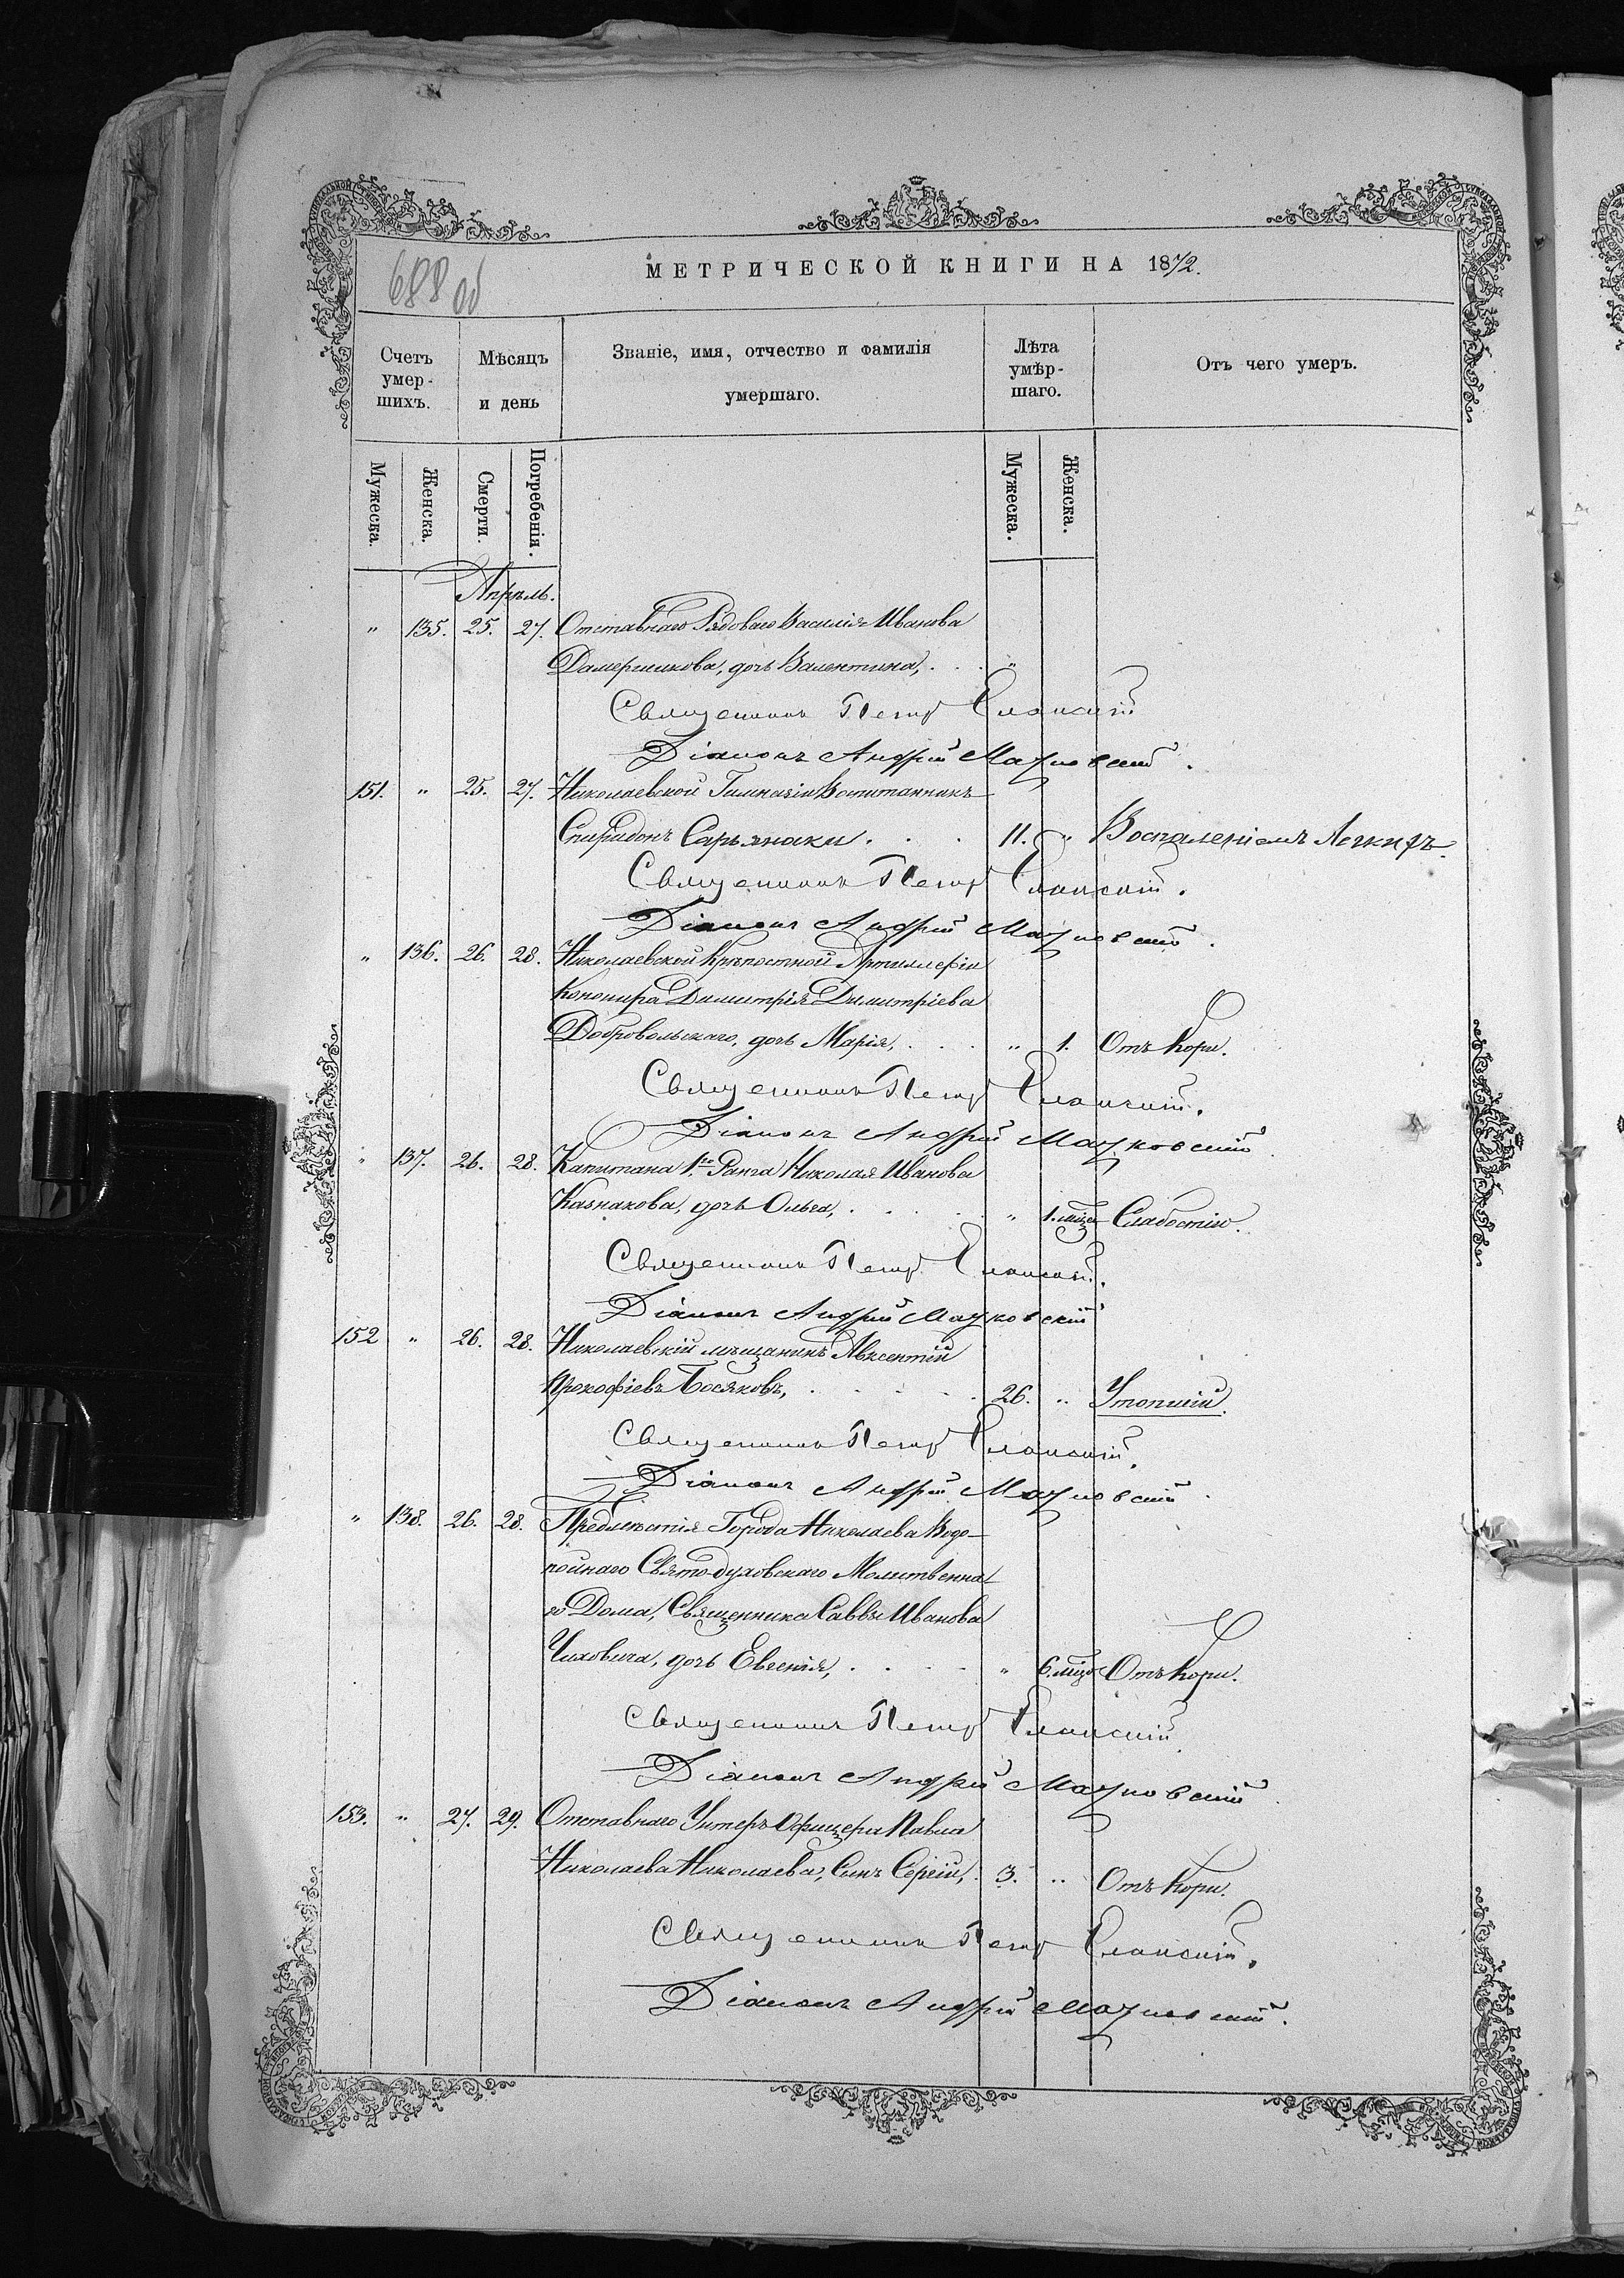 688 об
МЕТРИЧЕСКОЙ КНИГИ НА 1872.
Счетъ умер-шихъ. Мѣсяцъ и день Званіе, имя, отчество и фамилія умершаго. Лѣта умѣр-шаго. Отъ чего умеръ.
Мужеска. Женска. Смерти. Погребенія. Мужеска. Женска.
Апрѣль.
" 135. 25. 27. Отставнаго Рядоваго Василія Иванова
дочь Валентина, . . "
Священникъ Петръ Еланскій
Діаконъ Андрей Мацковскій.
151. " 25. 27. Николаевской Гимназіи Воспитанникъ
Спиридонъ Сарьянаки . . . 11. " Воспаленіемъ Легкихъ.
Священникъ Петръ Еланскій.
Діаконъ Андрей Мацковскій.
" 136. 26. 28. Николаевской Крѣпостной Артиллеріи
Канонира Димитрія Димитріева
Добровольскаго, дочь Марія, . . . " 1. Отъ Кори.
Священникъ Петръ Еланскій.
Діаконъ Андрей Мацковскій
" 137. 26. 28. Капитана 1го Ранга Николая Иванова
Казнакова, дочь Ольга, . . . . " 1. мѣся Слабостію.
Священникъ Петръ Еланскій.
Діаконъ Андрей Мацковскій
152 " 26. 28. Николаевскій мѣщанинъ Авксентій
Прокофіевъ Босяковъ, . . . . . 26. " Утопшій.
Священникъ Петръ Еланскій.
Діаконъ Андрей Мацковскій.
" 138. 26. 28. Предмѣстія Города Николаева Водо-
пойнаго Свято-духовскаго Молитвенна-
го Дома, Священника Саввы Иванова
Чиховича, дочь Евгенія, . . . . " 6. мѣся Отъ Кори.
Священникъ Петръ Еланскій
Діаконъ Андрей Мацковскій.
153. " 27. 29. Отставнаго Унтеръ Офицера Павла
Николаева Николаева, Сынъ Сергій, . 3. " Отъ Кори.
Священникъ Петръ Еланскій.
Діаконъ Андрей Мацковскій.